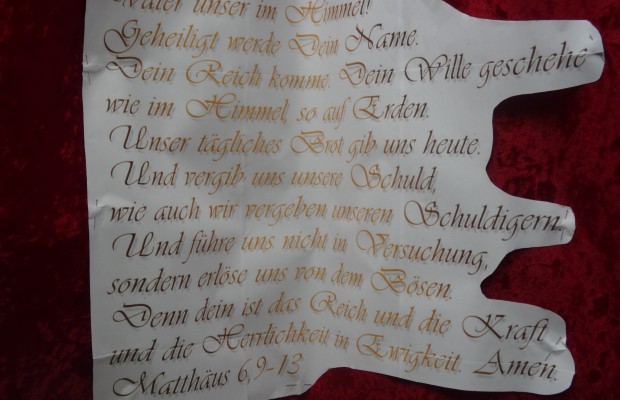 Vater unser im Himmel!
Geheiligt werde Dein Name.
Dein Reich komme. Dein Wille geschehe
wie im Himmel, so auf Erden.
Unser tägliches Brot gib uns heute.
Und vergib uns unsere Schuld,
wie auch wir vergeben unseren Schuldigern.
Und führe uns nicht in Versuchung,
sondern erlöse uns von dem Bösen.
Denn dein ist das Reich und die Kraft
und die Herrlichkeit in Ewigkeit. Amen.
Matthäus 6,9-13